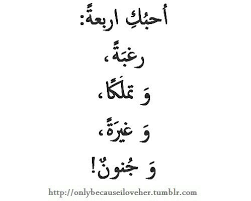 أحبُكِ اربعةً:
رغبَةً،
وَ تملَكًا،
وَ غيرَةً،
وَ جُنونٌ!
http://onlybecauseiloveher.tumblr.com